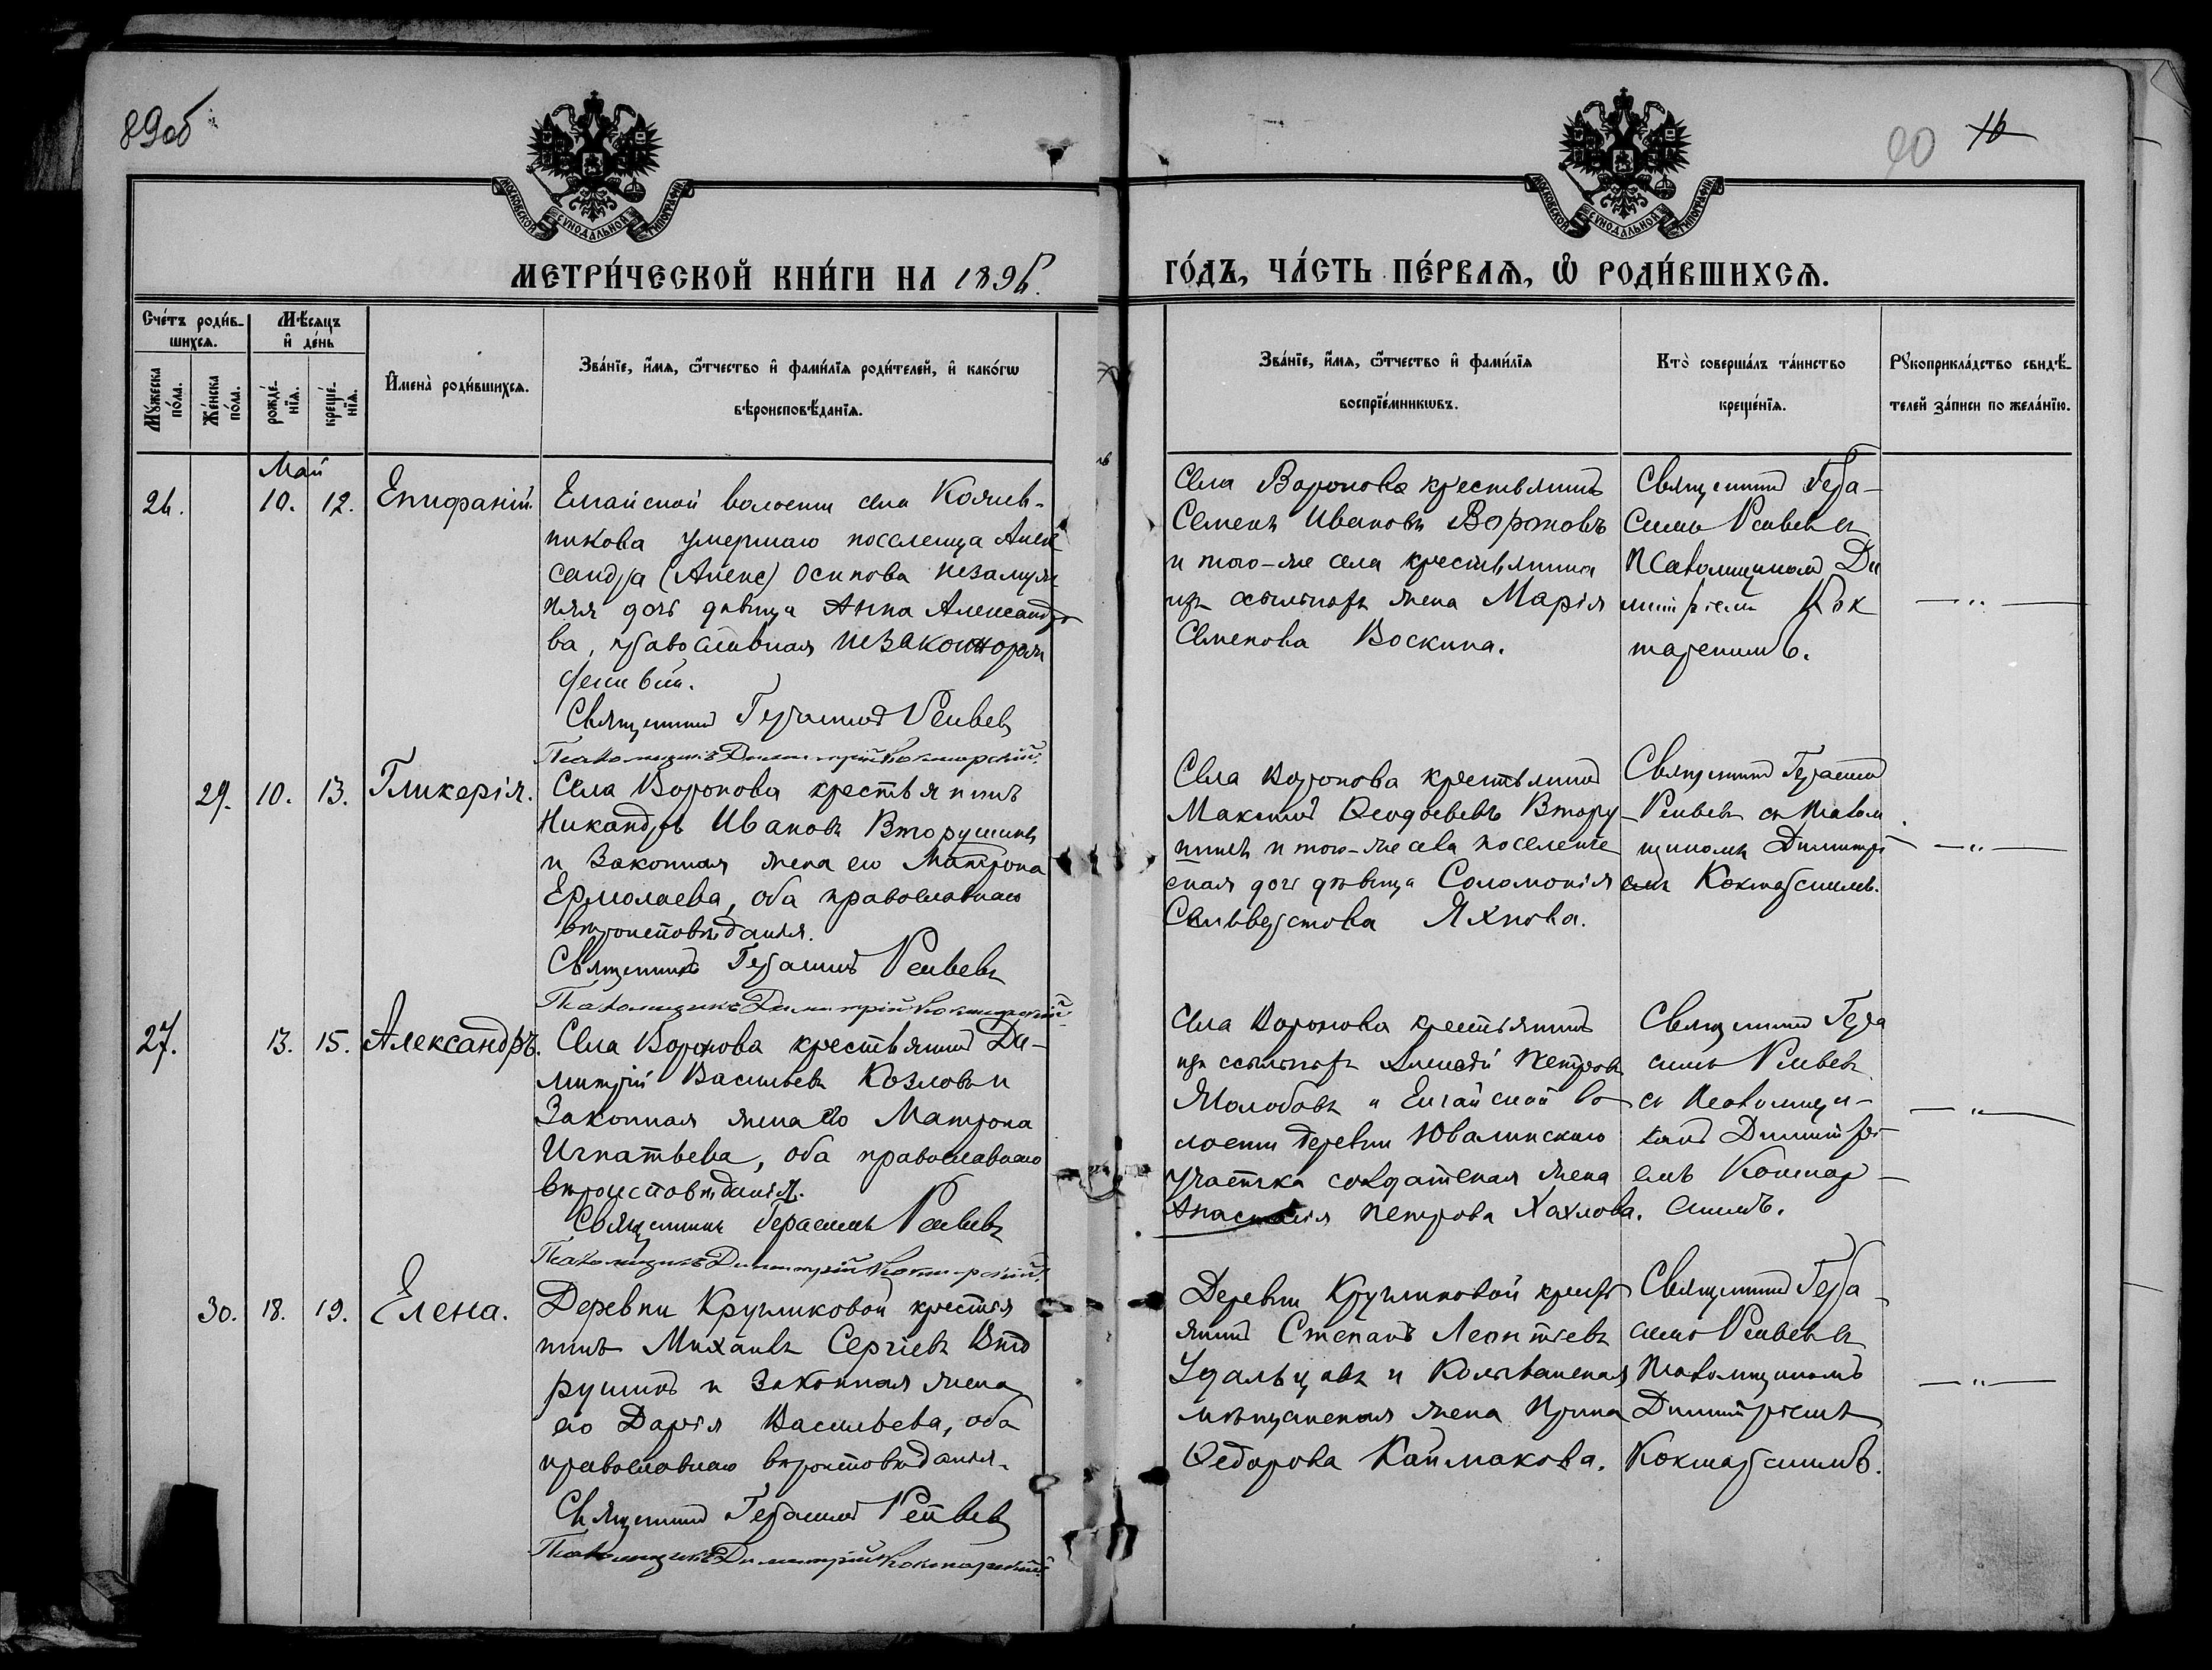 89об
90 16
МОСКОВСКОЙ СУНОДАЛЬНОЙ ТИПОГРАФІИ
МОСКОВСКОЙ СУНОДАЛЬНОЙ ТИПОГРАФІИ
МЕТРИ́ЧЕСКОЙ КНИ́ГИ НА 1896.
ГО́ДЪ, ЧА́СТЬ ПЕ́РВАѦ, Ѽ РОДИ́ВШИХСѦ.
Сче́тъ роди́в-
шихсѧ.
Мѣ́сѧцъ
и҆ де́нь
Мꙋ́жеска
по́ла.
Же́нска
по́ла.
рожде́-
нїѧ.
креще́-
нїѧ.
И҆мена̀ роди́вшихсѧ.
Зва́нїе, и҆́мѧ, ѻ҆́тчество и҆ фами́лїѧ роди́телей, и҆ како́гѡ
вѣроисповѣ́данїѧ.
Зва́нїе, и҆́мѧ, ѻ҆́тчество и҆ фами́лїѧ
воспрїе́мникѡвъ.
Кто̀ соверша́лъ та́инство
креще́нїѧ.
Рꙋкоприкла́дство свидѣ́-
телей за́писи по жела́нїю.
Май
26. 10. 12. Епифаній.
Елгайской волости села Кожев-
никова умершаго поселенца Алек
сандра (Алекс) Осипова незамуж
няя дочь дѣвица Анна Александро
ва, православная незаконорож
Священникъ Герасимъ
Псаломщикъ Димитрій Коктарскій.
Села Воронова крестьянинъ
Семенъ Ивановъ Вороновъ
и того-же села крестьянина
изъ ссыльныхъ жена Марія
Семенова Воскина.
Священникъ Гера-
симъ съ
Псаломщикомъ Ди
митріемъ Кок
тарскимъ.
— „ —
29. 10. 13. Гликерія.
Села Воронова крестьянинъ
Никандръ Ивановъ Вторушинъ
и законная жена его Матрона
Ермолаева, оба православнаго
вѣроисповѣданія.
Священникъ Герасимъ
Псаломщикъ Димитрій Коктарскій
Села Воронова крестьянинъ
Максимъ Ѳеодоевъ Втору-
шинъ и того-же села поселенче
ская дочь дѣвица Соломонія
Сильверстова Яхнова.
Священникъ Герасимъ
съ Псалом
щикомъ Димитрі
емъ Коктарскимъ.
— „ —
27. 13. 15. Александръ.
Села Воронова крестьянинъ Ди-
митрій Васильевъ Козловъ и
законная жена его Матрона
Игнатьева, оба православнаго
вѣроисповѣданія.
Священникъ Герасимъ
Псаломщикъ Димитрій Коктарскій
Села Воронова крестьянинъ
изъ ссыльныхъ Алексѣй Петровъ
Молобовъ и Елгайской во
лости деревни Ювалинскаго
участка солдатская жена
Анастасія Петрова Хахлова.
Священникъ Гера
симъ
съ Псаломщи-
комъ Димитрі-
емъ Коктар-
скимъ.
— „ —
30. 18. 19. Елена.
Деревни Кругликовой крестья
нинъ Михаилъ Сергіевъ Вто
рушинъ и законная жена
его Дарія Васильева, оба
православнаго вѣроисповѣданія.
Священникъ Герасимъ
Псаломщикъ Димитрій Коктарскій
Деревни Кругликовой кресть
янинъ Степанъ Леонтіевъ
Удальцовъ и Колыванская
мѣщанская жена Ирина
Ѳедорова Каймакова.
Священникъ Гера-
симъ съ
Псаломщикомъ
Димитріемъ
Коктарскимъ.
— „ —